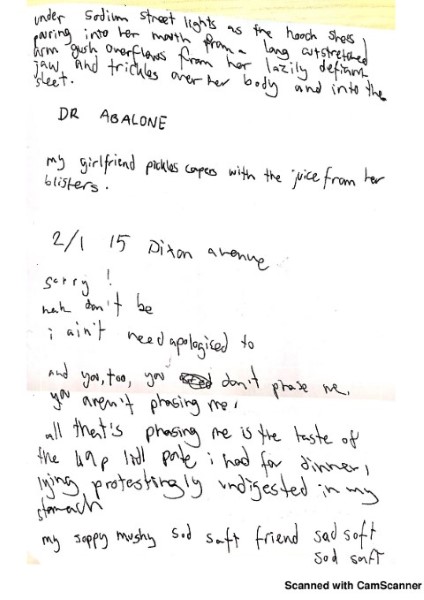 under sodium street lights as the hooch she's
pouring into her mouth from a long outstretched
arm gush overflows from her lazily defiant
jaw and trickles over her body and into the
sleet.
DR ABALONE
my girlfriend pickles capers with the juice from her
blisters.
2/1 15 Dixon avenue
sorry!
nah don't be
i ain't need apologised to
and you, too, you don't phase me.
you aren't phasing me,
all that's phasing me is the taste of
the 49p lidl pate i had for dinner,
lying protestingly undigested in my
stomach
my soppy mushy sod saft friend sad soft
sod saft
Scanned with CamScanner